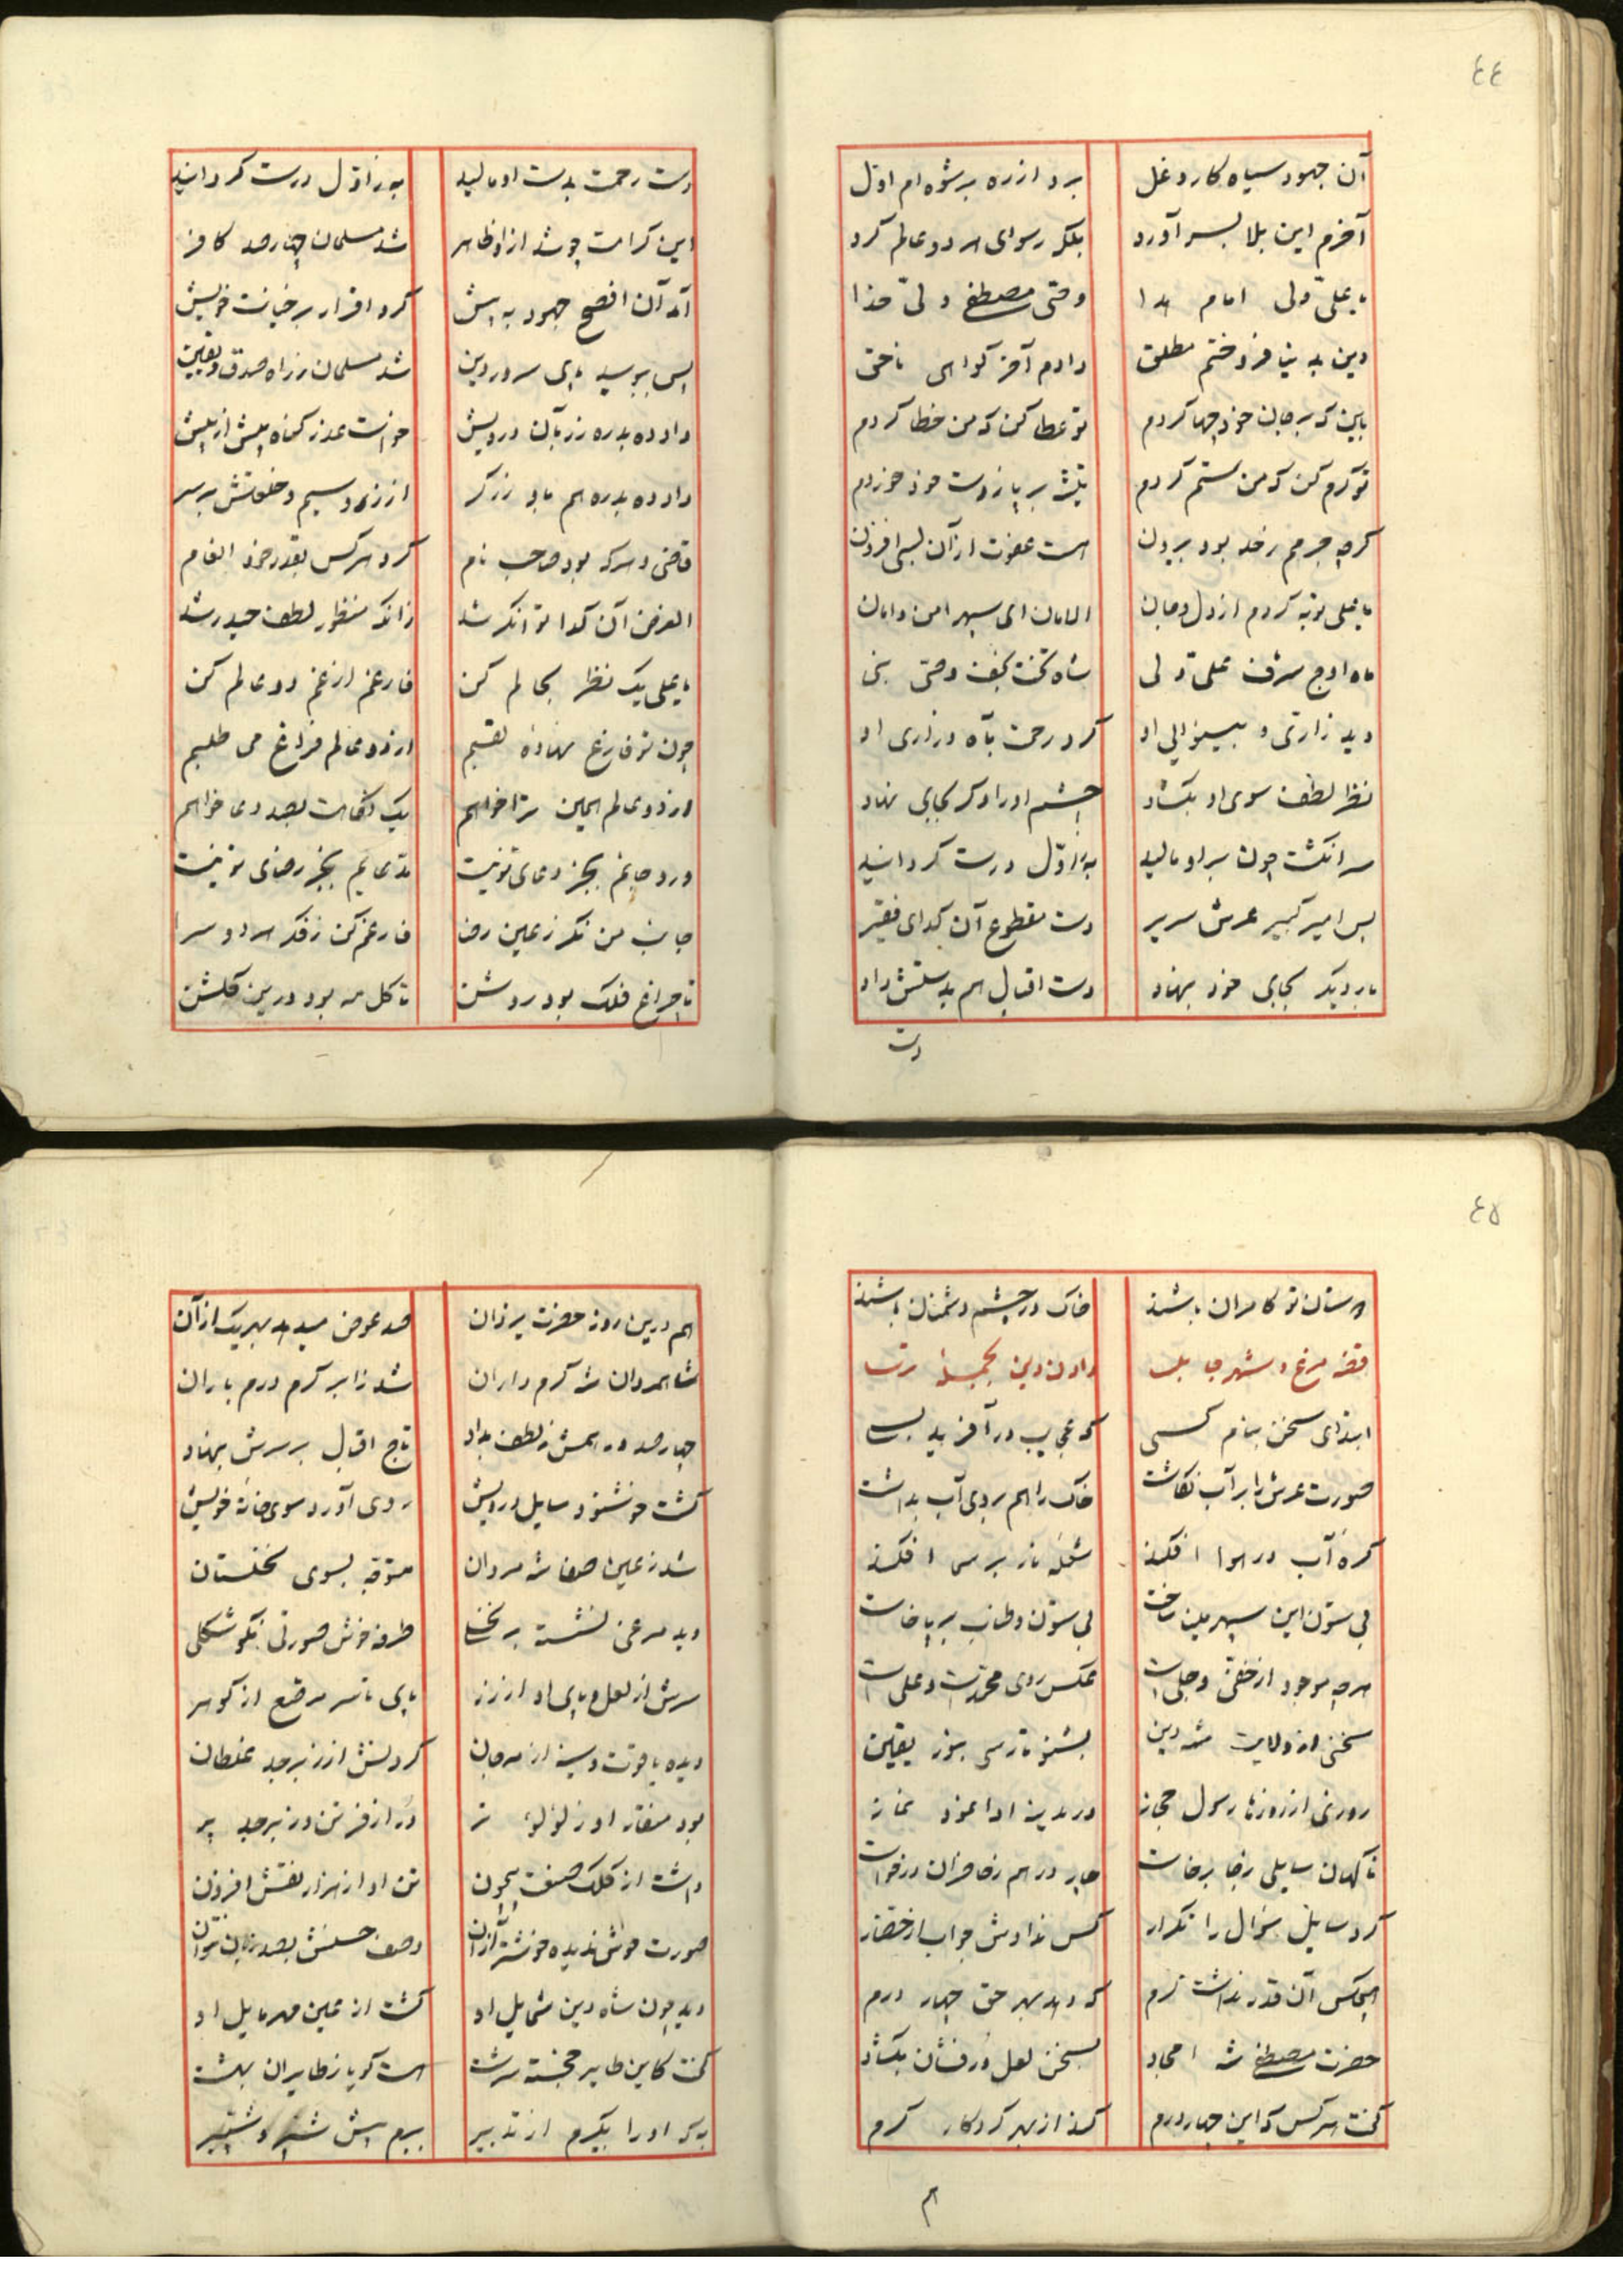 ٤٤
آن جهود سیاه کار دغل برد از ره برشوه ام اول
آخرم این بلا بسر آورد بلکه رسوای هر دو عالم کرد
یا علی ولی امام هدا وصی مصطفی ولی خدا
دین بدنیا فروختم مطلق دادم آخر گواهی ناحق
باین که بر جان خود جها کردم تو عطا کن که من خطا کردم
تو کرم کن که من ستم کردم تیشه بر پا ز دست خود خوردم
گرچه جرمم زحد بود بیرون هست عفوت از آن بسی افزون
یا علی توبه کردم از دل و جان الامان ای سپهر امن و امان
ماه اوج شرف علی ولی شاه تخت نجف وصی نبی
دید زاری و بینوایی او کرد رحمت بآه و زاری او
نظر لطف سوی او بگشاد چشم او را دگر بجای نهاد
سر انگشت چون برو مالید به ز اول درست گردانید
پس امیر کبیر عرش سریر دست مقطوع آن گدای فقیر
بار دیگر بجای خود بنهاد دست اقبال هم بدستش داد
دست
دست رحمت بدست او مالید به ز اول درست گردانید
این کرامت چو شد از او ظاهر شد مسلمان چهارصد کافر
آمد آن افصح جهود به پیش کرد اقرار بر خیانت خویش
پس ببوسید پای سرور دین شد مسلمان ز راه صدق و یقین
داد ده بدره زر بآن درویش خواست عذر گناه بیش از پیش
داد ده بدره هم باو زرگر از زر و سیم و خلعتش برسر
قاضی و هر که بود صاحب نام کرد هر کس بقدر خود انعام
الغرض آن گدا توانگر شد زانکه منظور لطف حیدر شد
یا علی یک نظر بحالم کن فارغم از غم دو عالم کن
چون تو فارغ نهاده تقسیم از دو عالم فراغ می طلبیم
از دو عالم همین ترا خواهم یک نگاهت بصد دعا خواهم
ورد جانم بجز دعای تو نیست مدعایم بجز رضای تو نیست
جانب من نگر ز عین رضا فارغم کن ز فکر هر دو سرا
تا چراغ فلک بود روشن تا گل مه بود درین گلشن
٤٥
دوستان تو کامران باشند خاک در چشم دشمنان باشند
قصه مرغ و شهر جابلسا دادن دین بجمله ترسا
ابتدای سخن بنام کسی که عجایب در آفرید بسی
صورت عرش را بر آب نگاشت خاک را هم بروی آب بداشت
کره آب در هوا افکند شعله نار بر سما افکند
بی ستون این سپهر مین ساخت بی ستون و طناب بر پا خاست
هرچه موجود از خفی و جلی است عکس روی محمدست و علی است
سخنی از ولایت شه دین بشنو تا رسی بنور یقین
روزی از روزها رسول حجاز در مدینه ادا نمود نماز
ناگهان سایلی ز جا برخاست چار درهم ز حاضران درخواست
کرد سایل سؤال را تکرار کس ندادش جواب از حضار
هیچکس آن قدر نداشت کرم که دهد بهر حق چهار درم
حضرت مصطفی شه امجاد بسخن لعل در فشان بگشاد
گفت هر کس که این چهار درم کند از بهر کردگار کرم
هم
هم درین روز حضرت یزدان صد عوض میدهد بهر یک از آن
شاه مردان شه کرم داران شد ز ابر کرم درم باران
چهارصد درهمش ز لطف بداد تاج اقبال بر سرش بنهاد
گشت خوشنود سایل درویش روی آورد سوی خانه خویش
شد ز عین صفا شه مردان متوجه بسوی نخلستان
دید مرغی نشسته بر نخلی طرفه خوش صورتی نکو شکلی
سرش از لعل و پای او از زر پای تا سر مرصع از گوهر
دیده یاقوت و سینه از مرجان گردنش از زبرجد غلطان
بود منقار او ز لؤلؤ تر در از فر تن و زبرجد پر
داشت از کلک صنعت بیچون تن او از هزار نقش افزون
صورت خوش ندیده خوشتر از آن وصف حسنش بصد زبان نتوان
دید چون شاه دین شمایل او گشت از عین مهر مایل او
گفت کاین طایر خجسته سرشت هست گویا ز طایران بهشت
به که او را بگیرم از تدبیر ببرم پیش شبر و شبیر